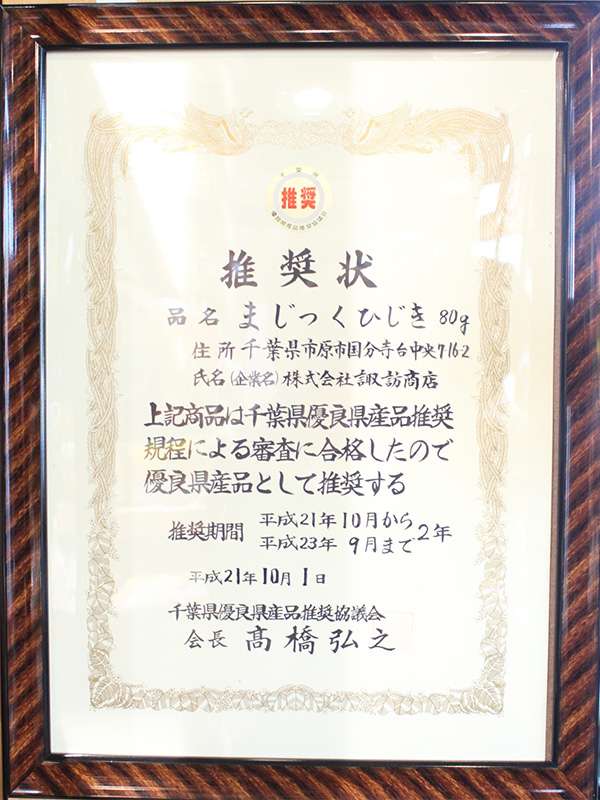 千葉県
推奨
優良県産品推奨協議会
推奨状
品名 まじっくひじき 80g
住所 千葉県市原市国分寺台中央7-16-2
氏名(企業名)株式会社諏訪商店
上記商品は千葉県優良県産品推奨
規程による審査に合格したので
優良県産品として推奨する
推奨期間 平成21年10月から
平成23年 9月まで 2年
平成21年10月1日
千葉県優良県産品推奨協議会
会長 髙橋弘之